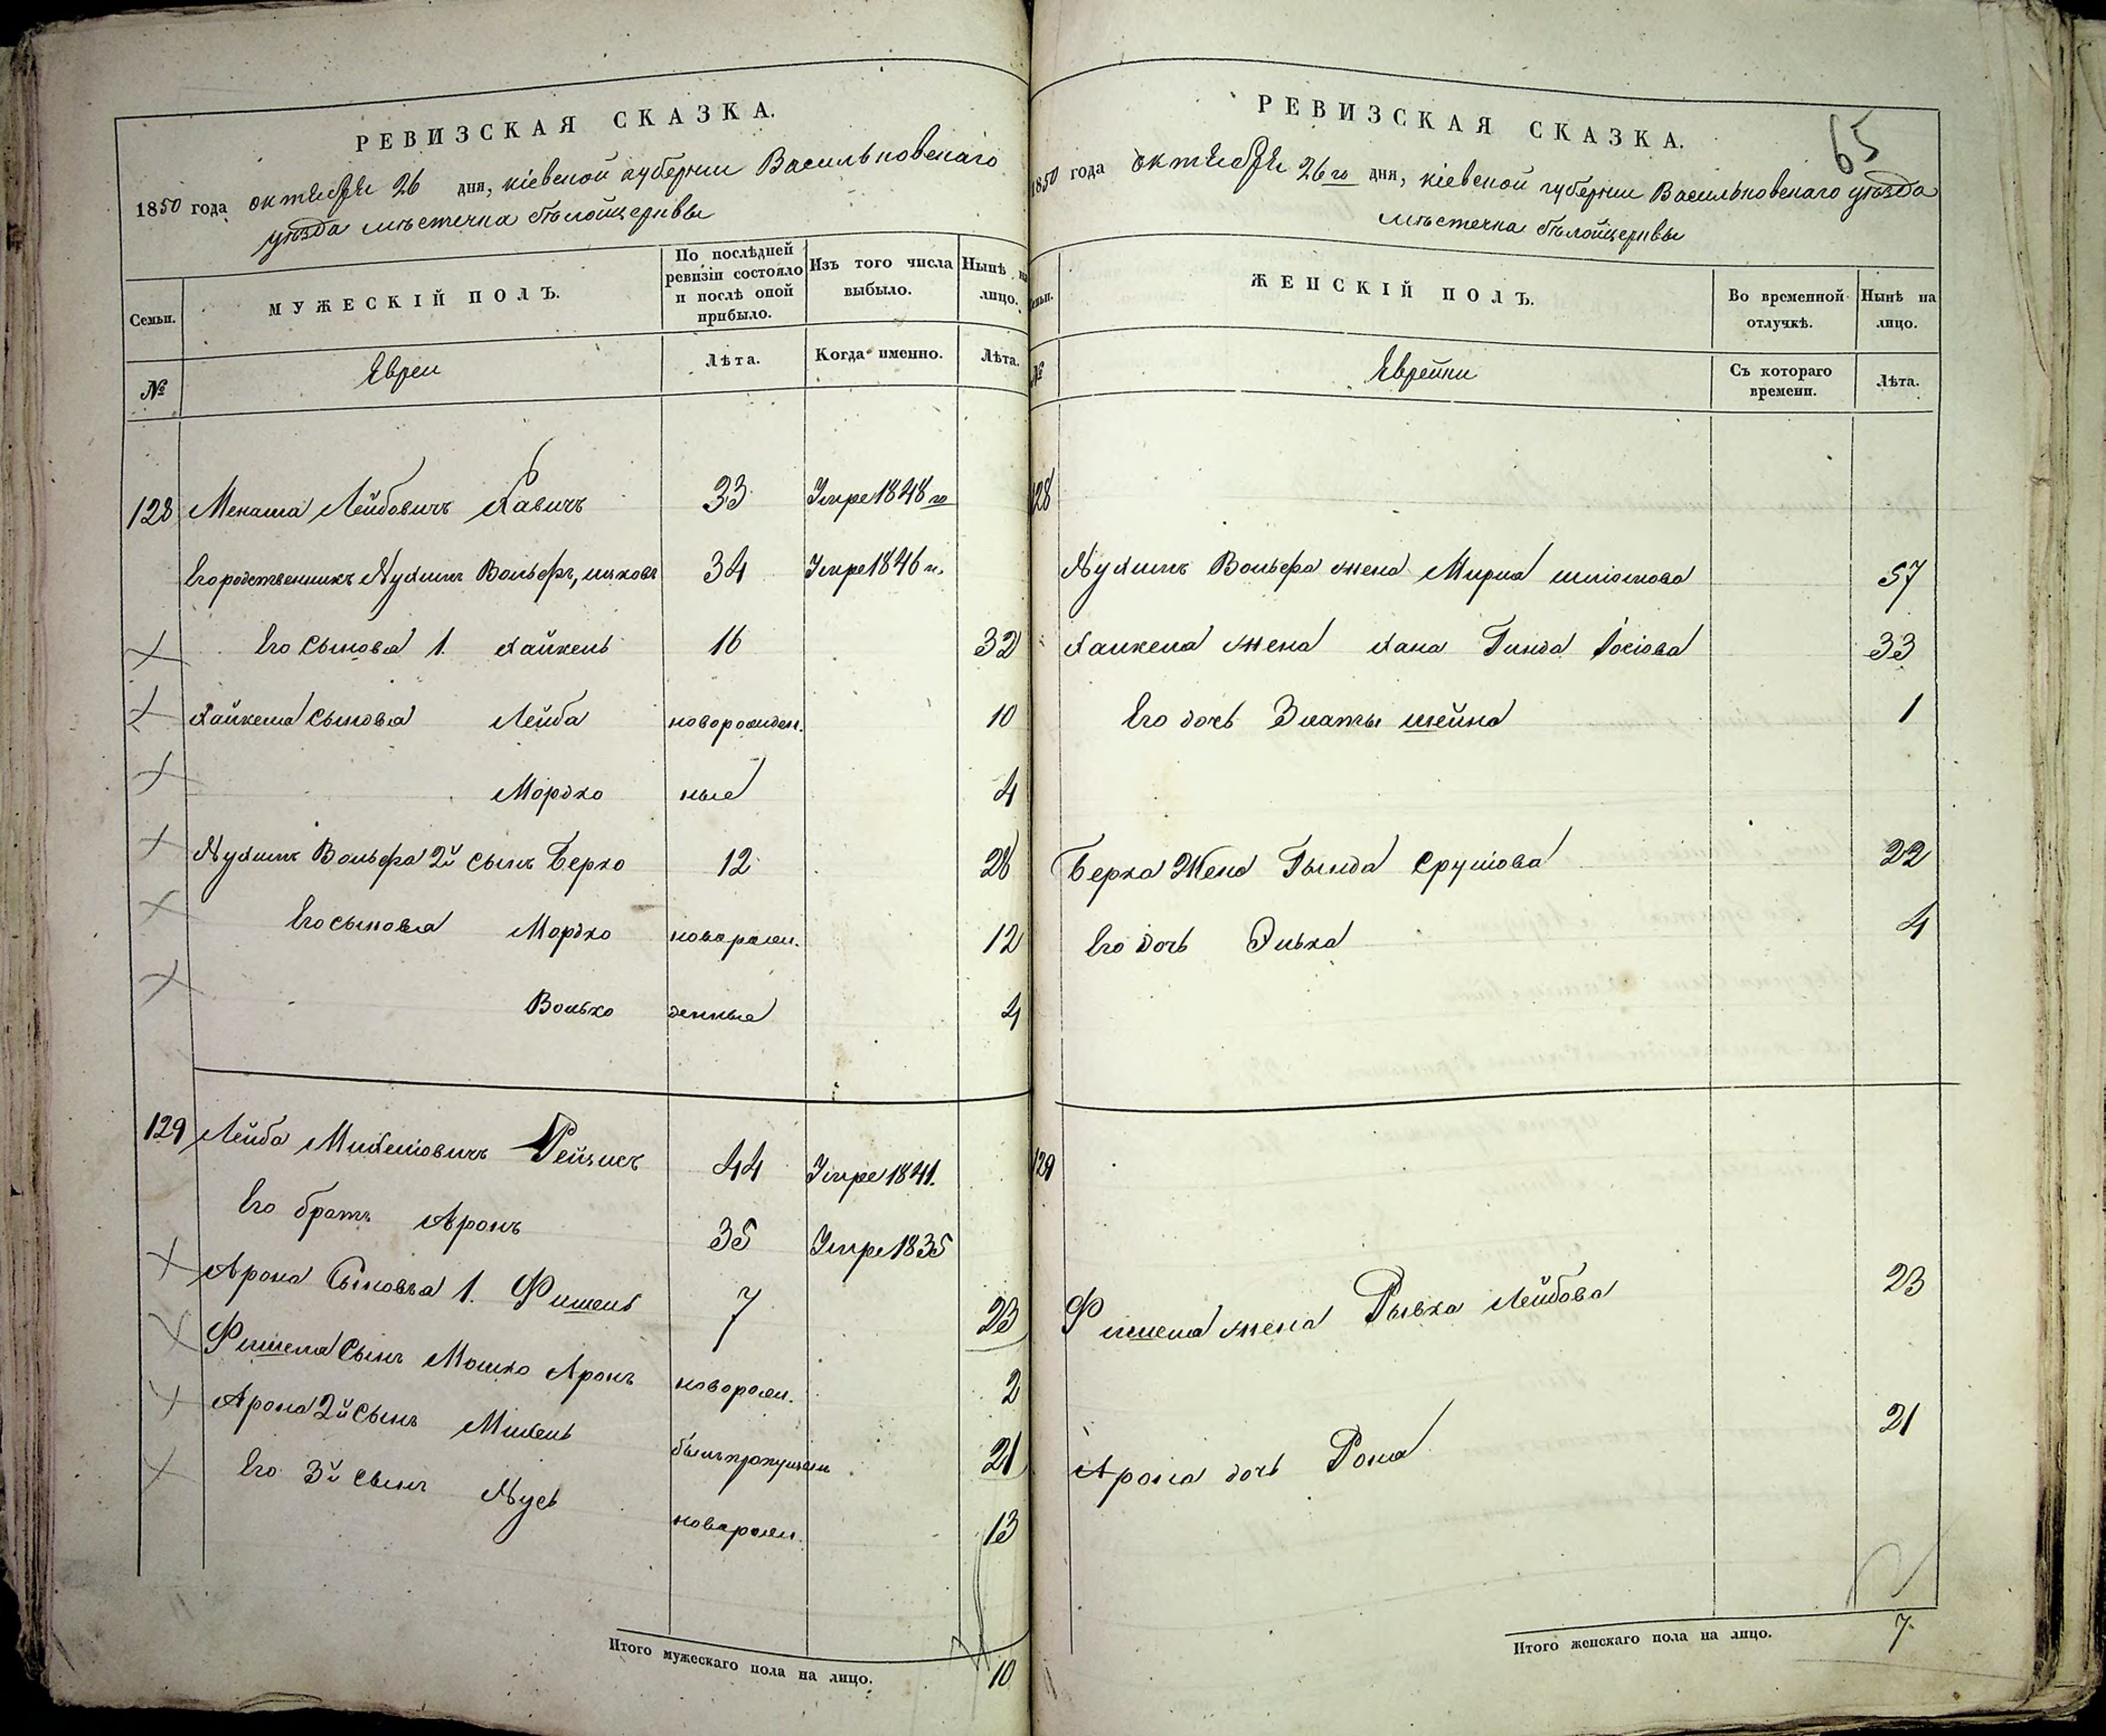 РЕВИЗСКАЯ СКАЗКА.
1850 года октября 26 дня, кіевской губерніи Васильковскаго
уѣзда мѣстечка бѣлойцерквы
Семьи. МУЖЕСКІЙ ПОЛЪ. По послѣдней ревизіи состояло и послѣ оной прибыло. Изъ того числа выбыло. Нынѣ на лицо.
№ Евреи Лѣта. Когда именно. Лѣта.
128 Менаша Лейбовичъ Равичъ 33 Умре 1848 го
Его родственникъ Нухимъ Вольфъ, 34 Умре 1846 г.
Его сыновья 1. Хайкель 16 32
Хайкеля сыновья Лейба новорожден. 10
Мордко ные 4
Нухимъ Вольфа 2й сынъ Берко 12 28
Его сыновья Мордко новорож. 12
Волько денные 4
129 Лейба Михелiовичъ Рейзисъ 44 Умре 1841.
Его братъ Аронъ 35 Умре 1835
Арона Сыновья 1. Фишель 7 23
Фишеля Сынъ Мошко Аронъ новорож. 2
Арона 2й Сынъ Михель былъ пропущенъ 21
Его 3й сынъ Нусь новорож. 13
Итого мужескаго пола на лицо. 10
РЕВИЗСКАЯ СКАЗКА.
65
1850 года октября 26го дня, кіевской губерніи Васильковскаго уѣзда
мѣстечка бѣлойцерквы
Семьи. ЖЕНСКІЙ ПОЛЪ. Во временной отлучкѣ. Нынѣ на лицо.
№ Еврейки Съ котораго времени. Лѣта.
128
Нухимъ Вольфа жена Мирля шліомова 57
Хайкеля жена Хана Гинда Іосіова 33
Его дочь Златы шейна 1
Берка Жена Гында Срулiова 22
Его дочь Элька 4
129
Фишеля жена Рывка Лейбова 23
Арона дочь Роня 21
Итого женскаго пола на лицо. 7.